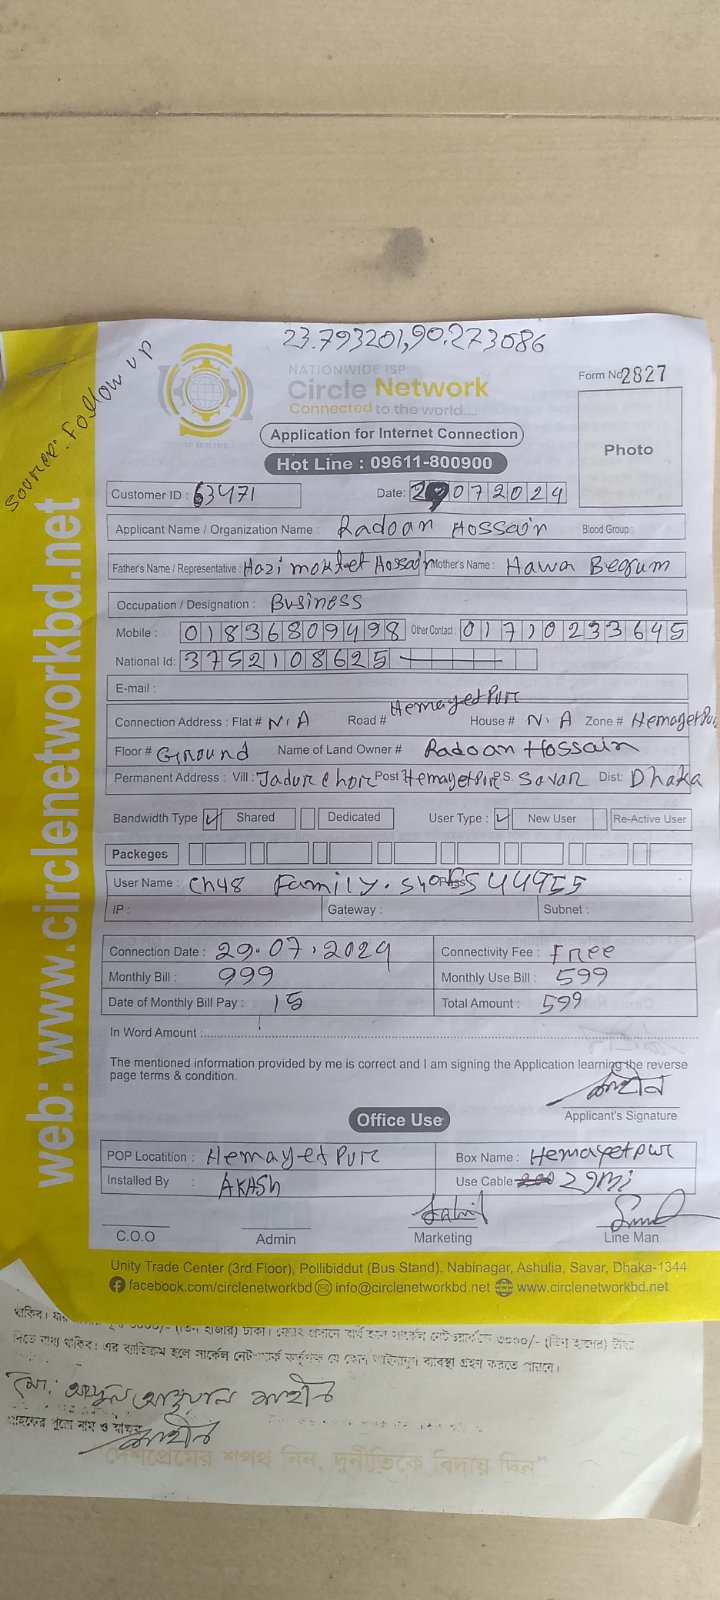 23.793201,90.273086
Source: Follow up
NATIONWIDE ISP
Circle Network
Connected to the world.....
Form No 2827
Photo
Application for Internet Connection
Hot Line : 09611-800900
Customer ID : 63471 Date: 29072024
Applicant Name / Organization Name : Radoan Hossain Blood Group :
Father's Name / Representative : Hazi Hossain Mother's Name : Hawa Begum
Occupation / Designation : Business
Mobile : 01836809498 Other Contact : 01710233645
National Id: 3752108625
E-mail :
Connection Address : Flat # N.A Road # Hemayetpur House # N.A Zone # Hemayetpur
Floor # Ground Name of Land Owner # Radoan Hossain
Permanent Address : Vill : Jadur Chor Post Hemayetpur P.S. Savar Dist: Dhaka
Bandwidth Type ✓ Shared Dedicated User Type : ✓ New User Re-Active User
Packeges
User Name : Ch48 Family.shop 44955
IP : Gateway : Subnet :
Connection Date : 29.07.2024 Connectivity Fee : Free
Monthly Bill : 999 Monthly Use Bill : 599
Date of Monthly Bill Pay : 15 Total Amount : 599
In Word Amount :
The mentioned information provided by me is correct and I am signing the Application learning the reverse
page terms & condition.
Applicant's Signature
Office Use
POP Locatition : Hemayetpur Box Name : Hemayetpur
Installed By : AKASH Use Cable 29mi
C.O.O Admin Marketing Line Man
Unity Trade Center (3rd Floor), Pollibiddut (Bus Stand), Nabinagar, Ashulia, Savar, Dhaka-1344
facebook.com/circlenetworkbd info@circlenetworkbd.net www.circlenetworkbd.net
web: www.circlenetworkbd.net
দিতে বাধ্য থাকিব। এর ব্যতিক্রম হলে সার্কেল নেটওয়ার্ক কর্তৃপক্ষ যে কোন আইনানুগ ব্যবস্থা গ্রহণ করতে পারবে।
গ্রাহকের পুরো নাম ও স্বাক্ষর
দেশপ্রেমের শপথ নিন, দুর্নীতিকে বিদায় দিন"